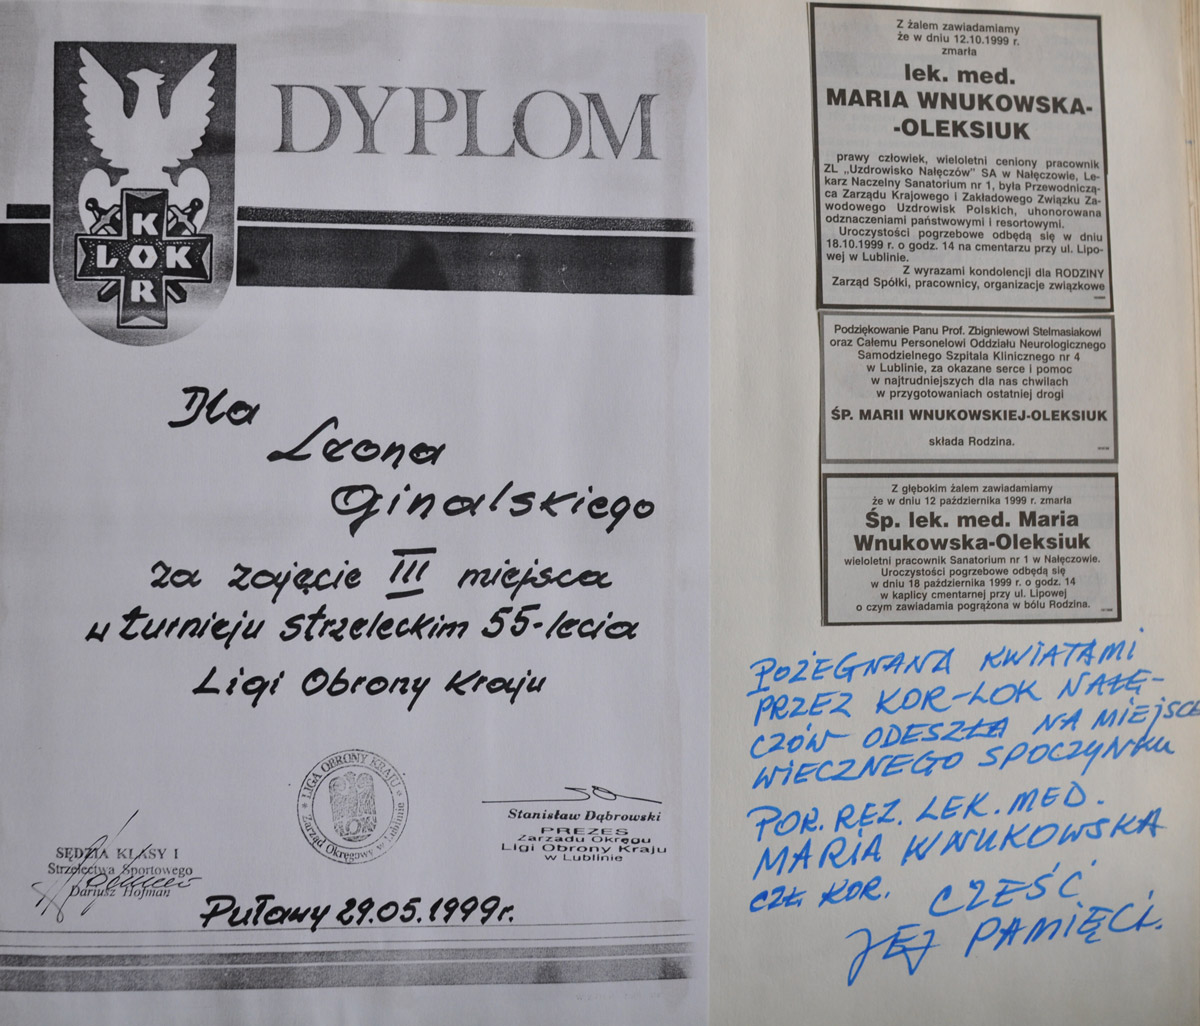 DYPLOM
K
LOK
R
Dla
Leona
Ginalskiego
za zajęcie III miejsca
w turnieju strzeleckim 55-lecia
Ligi Obrony Kraju
LIGA OBRONY KRAJU
Zarząd Okręgowy w Lublinie
Stanisław Dąbrowski
PREZES
Zarządu Okręgu
Ligi Obrony Kraju
w Lublinie
SĘDZIA KLASY I
Strzelectwa Sportowego
Dariusz Hofman
Puławy 29.05.1999r.
Z żalem zawiadamiamy
że w dniu 12.10.1999 r.
zmarła
lek. med.
MARIA WNUKOWSKA-
-OLEKSIUK
prawy człowiek, wieloletni ceniony pracownik
ZL „Uzdrowisko Nałęczów" SA w Nałęczowie, Le-
karz Naczelny Sanatorium nr 1, była Przewodniczą-
ca Zarządu Krajowego i Zakładowego Związku Za-
wodowego Uzdrowisk Polskich, uhonorowana
odznaczeniami państwowymi i resortowymi.
Uroczystości pogrzebowe odbędą się w dniu
18.10.1999 r. o godz. 14 na cmentarzu przy ul. Lipo-
wej w Lublinie.
Z wyrazami kondolencji dla RODZINY
Zarząd Spółki, pracownicy, organizacje związkowe
Podziękowanie Panu Prof. Zbigniewowi Stelmasiakowi
oraz Całemu Personelowi Oddziału Neurologicznego
Samodzielnego Szpitala Klinicznego nr 4
w Lublinie, za okazane serce i pomoc
w najtrudniejszych dla nas chwilach
w przygotowaniach ostatniej drogi
ŚP. MARII WNUKOWSKIEJ-OLEKSIUK
składa Rodzina.
Z głębokim żalem zawiadamiamy
że w dniu 12 października 1999 r. zmarła
Śp. lek. med. Maria
Wnukowska-Oleksiuk
wieloletni pracownik Sanatorium nr 1 w Nałęczowie.
Uroczystości pogrzebowe odbędą się
w dniu 18 października 1999 r. o godz. 14
w kaplicy cmentarnej przy ul. Lipowej
o czym zawiadamia pogrążona w bólu Rodzina.
POŻEGNANA KWIATAMI
PRZEZ KOR-LOK NAŁĘ-
CZÓW ODESZŁA NA MIEJSCE
WIECZNEGO SPOCZYNKU
POR. REZ. LEK. MED.
MARIA WNUKOWSKA
CZŁ. KOR. CZEŚĆ
JEJ PAMIĘCI.